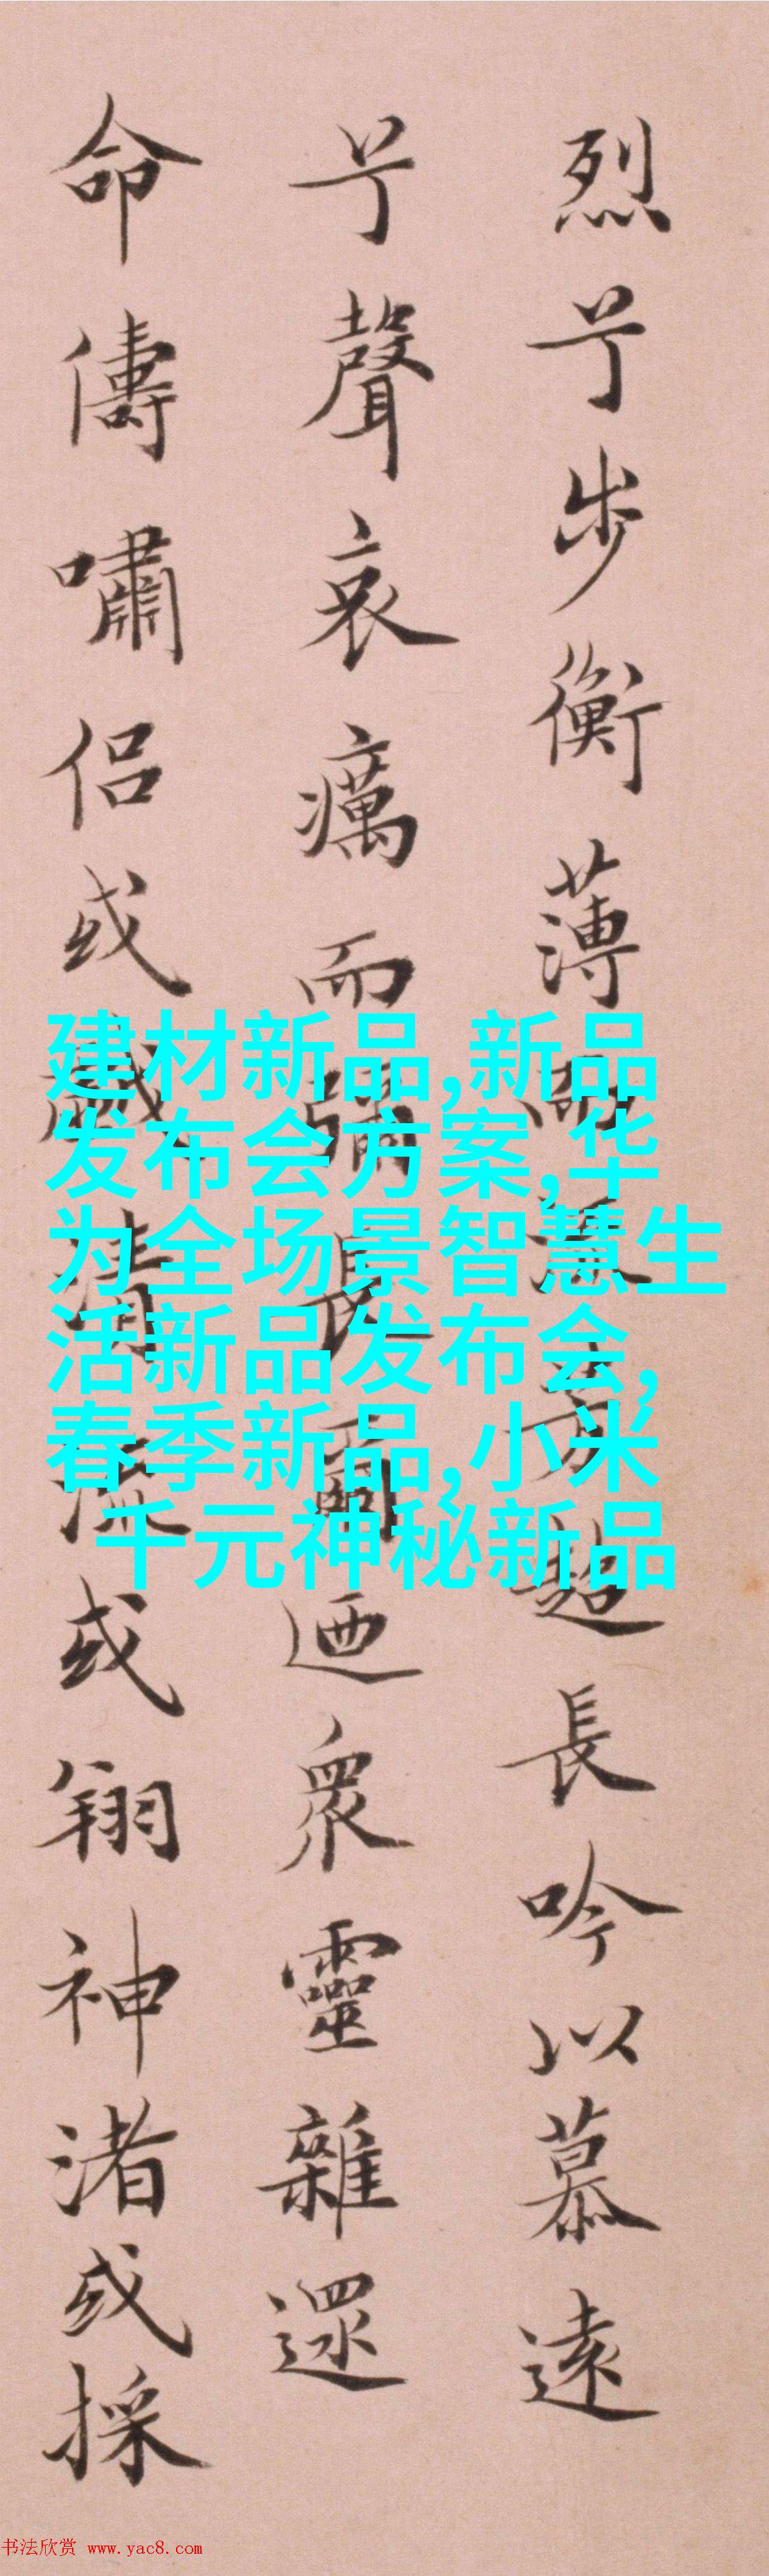 烈兮步衡薄而流芳超長吟以慕遠
兮聲哀癘而彌長爾迺眾靈雜遝
命儔嘯侶或戲清流或翔神渚或採
建材新品,新品
发布会方案,华
为全场景智慧生
活新品发布会,
春季新品,小米
千元神秘新品
书法欣赏 www.yac8.com